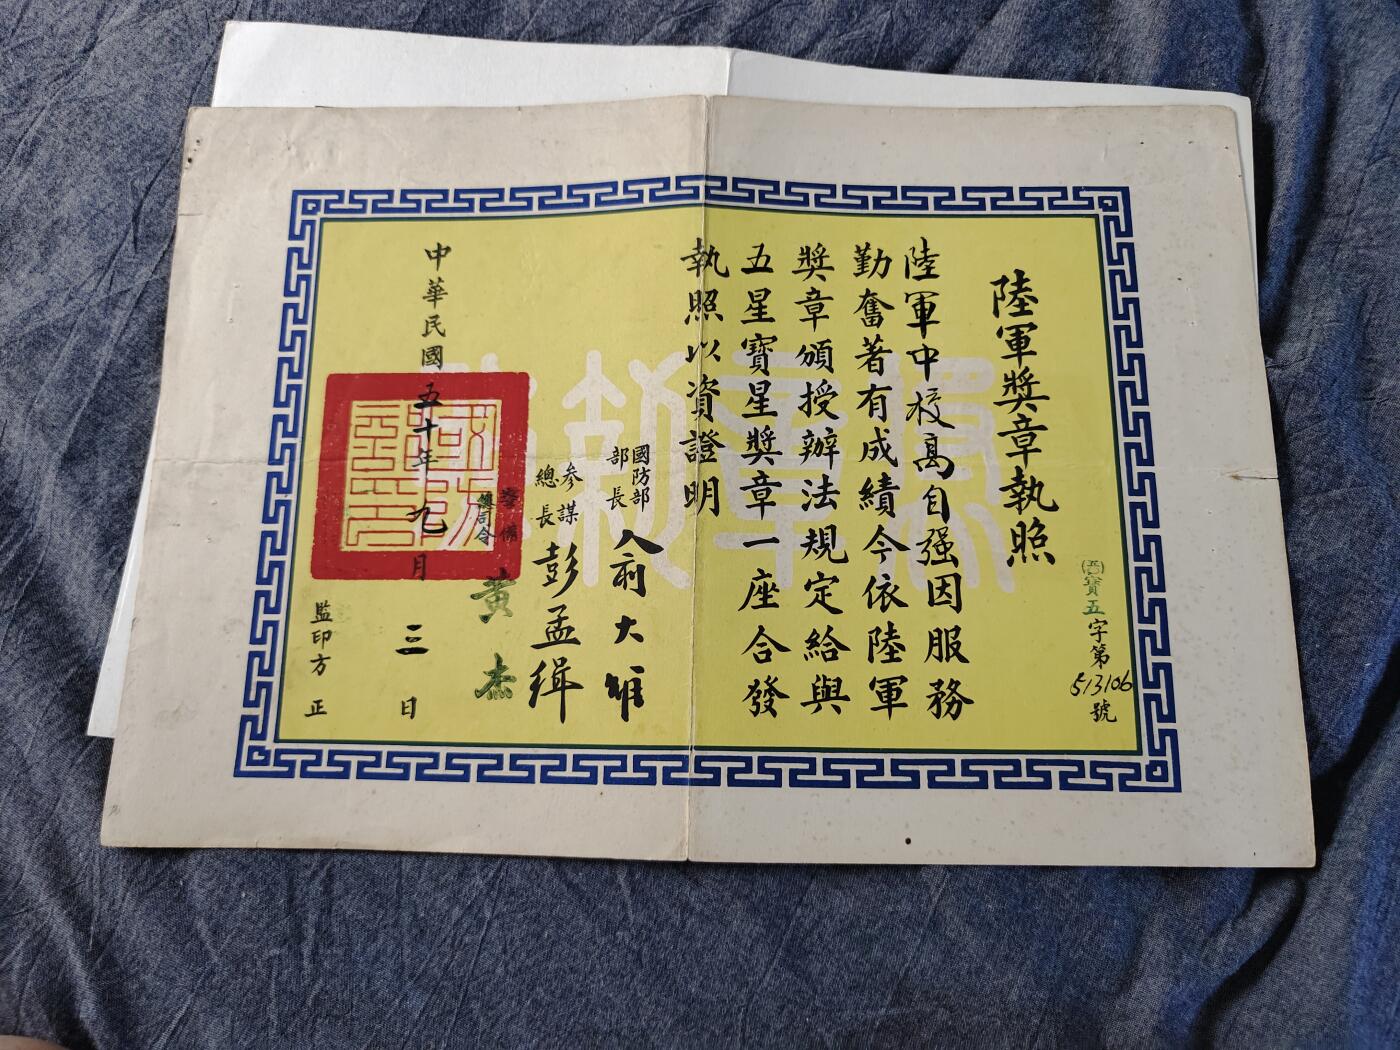 陸軍獎章執照
寶五字第513106號
陸軍中校高自强因服務
勤奮著有成績今依陸軍
獎章頒授辦法規定給與
五星寶星獎章一座合發
執照以資證明
國防部
部長
俞大維
參謀
總長
彭孟緝
警備
總司令
黃杰
中華民國五十年九月三日
監印方正